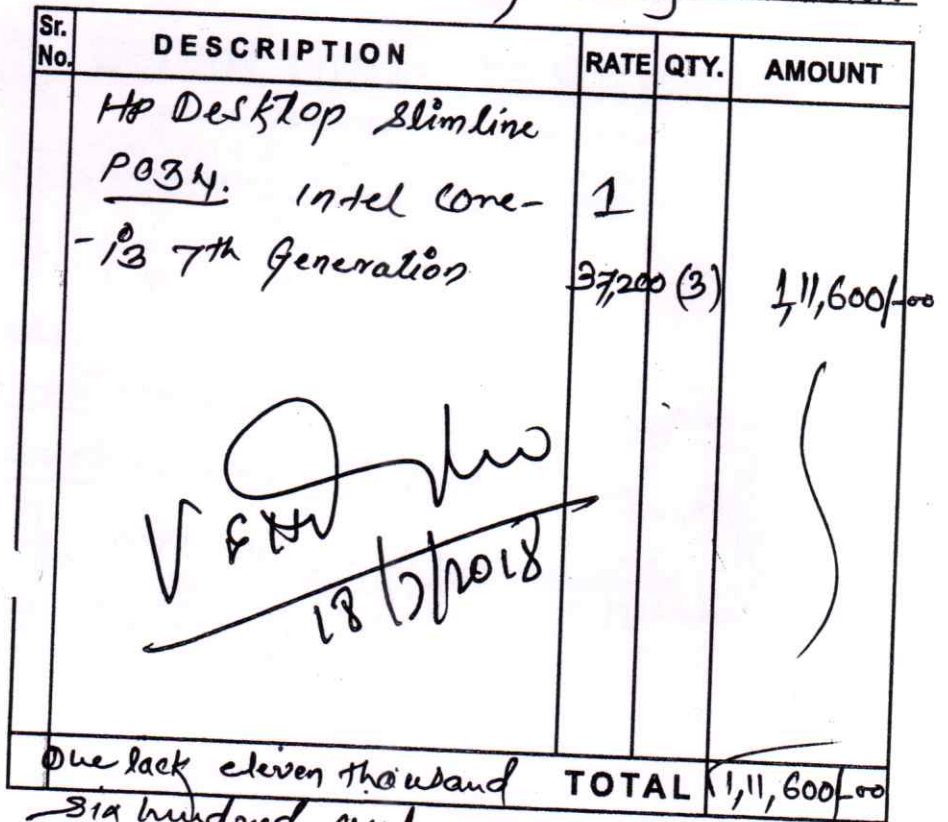 Sr. No. DESCRIPTION RATE QTY. AMOUNT
HP Desktop Slimline
P034. intel core- 1
-i3 7th Generation 37,200 (3) 1,11,600/-00
18/7/2018
One lack eleven thousand TOTAL 1,11,600/-00
Six hundred